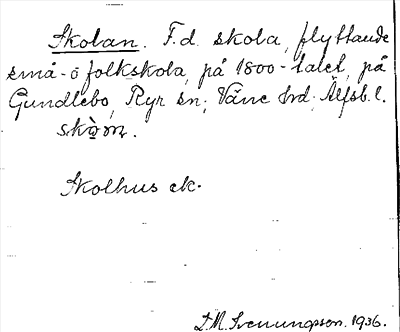 Skolan. F.d. skola, flyttande
små- o folkskola, på 1800-talet, på
Gundlebo, Ryr sn; Väne hrd. Älfsb. l.
Skolhus ek.
D.M. Svenungson. 1936.